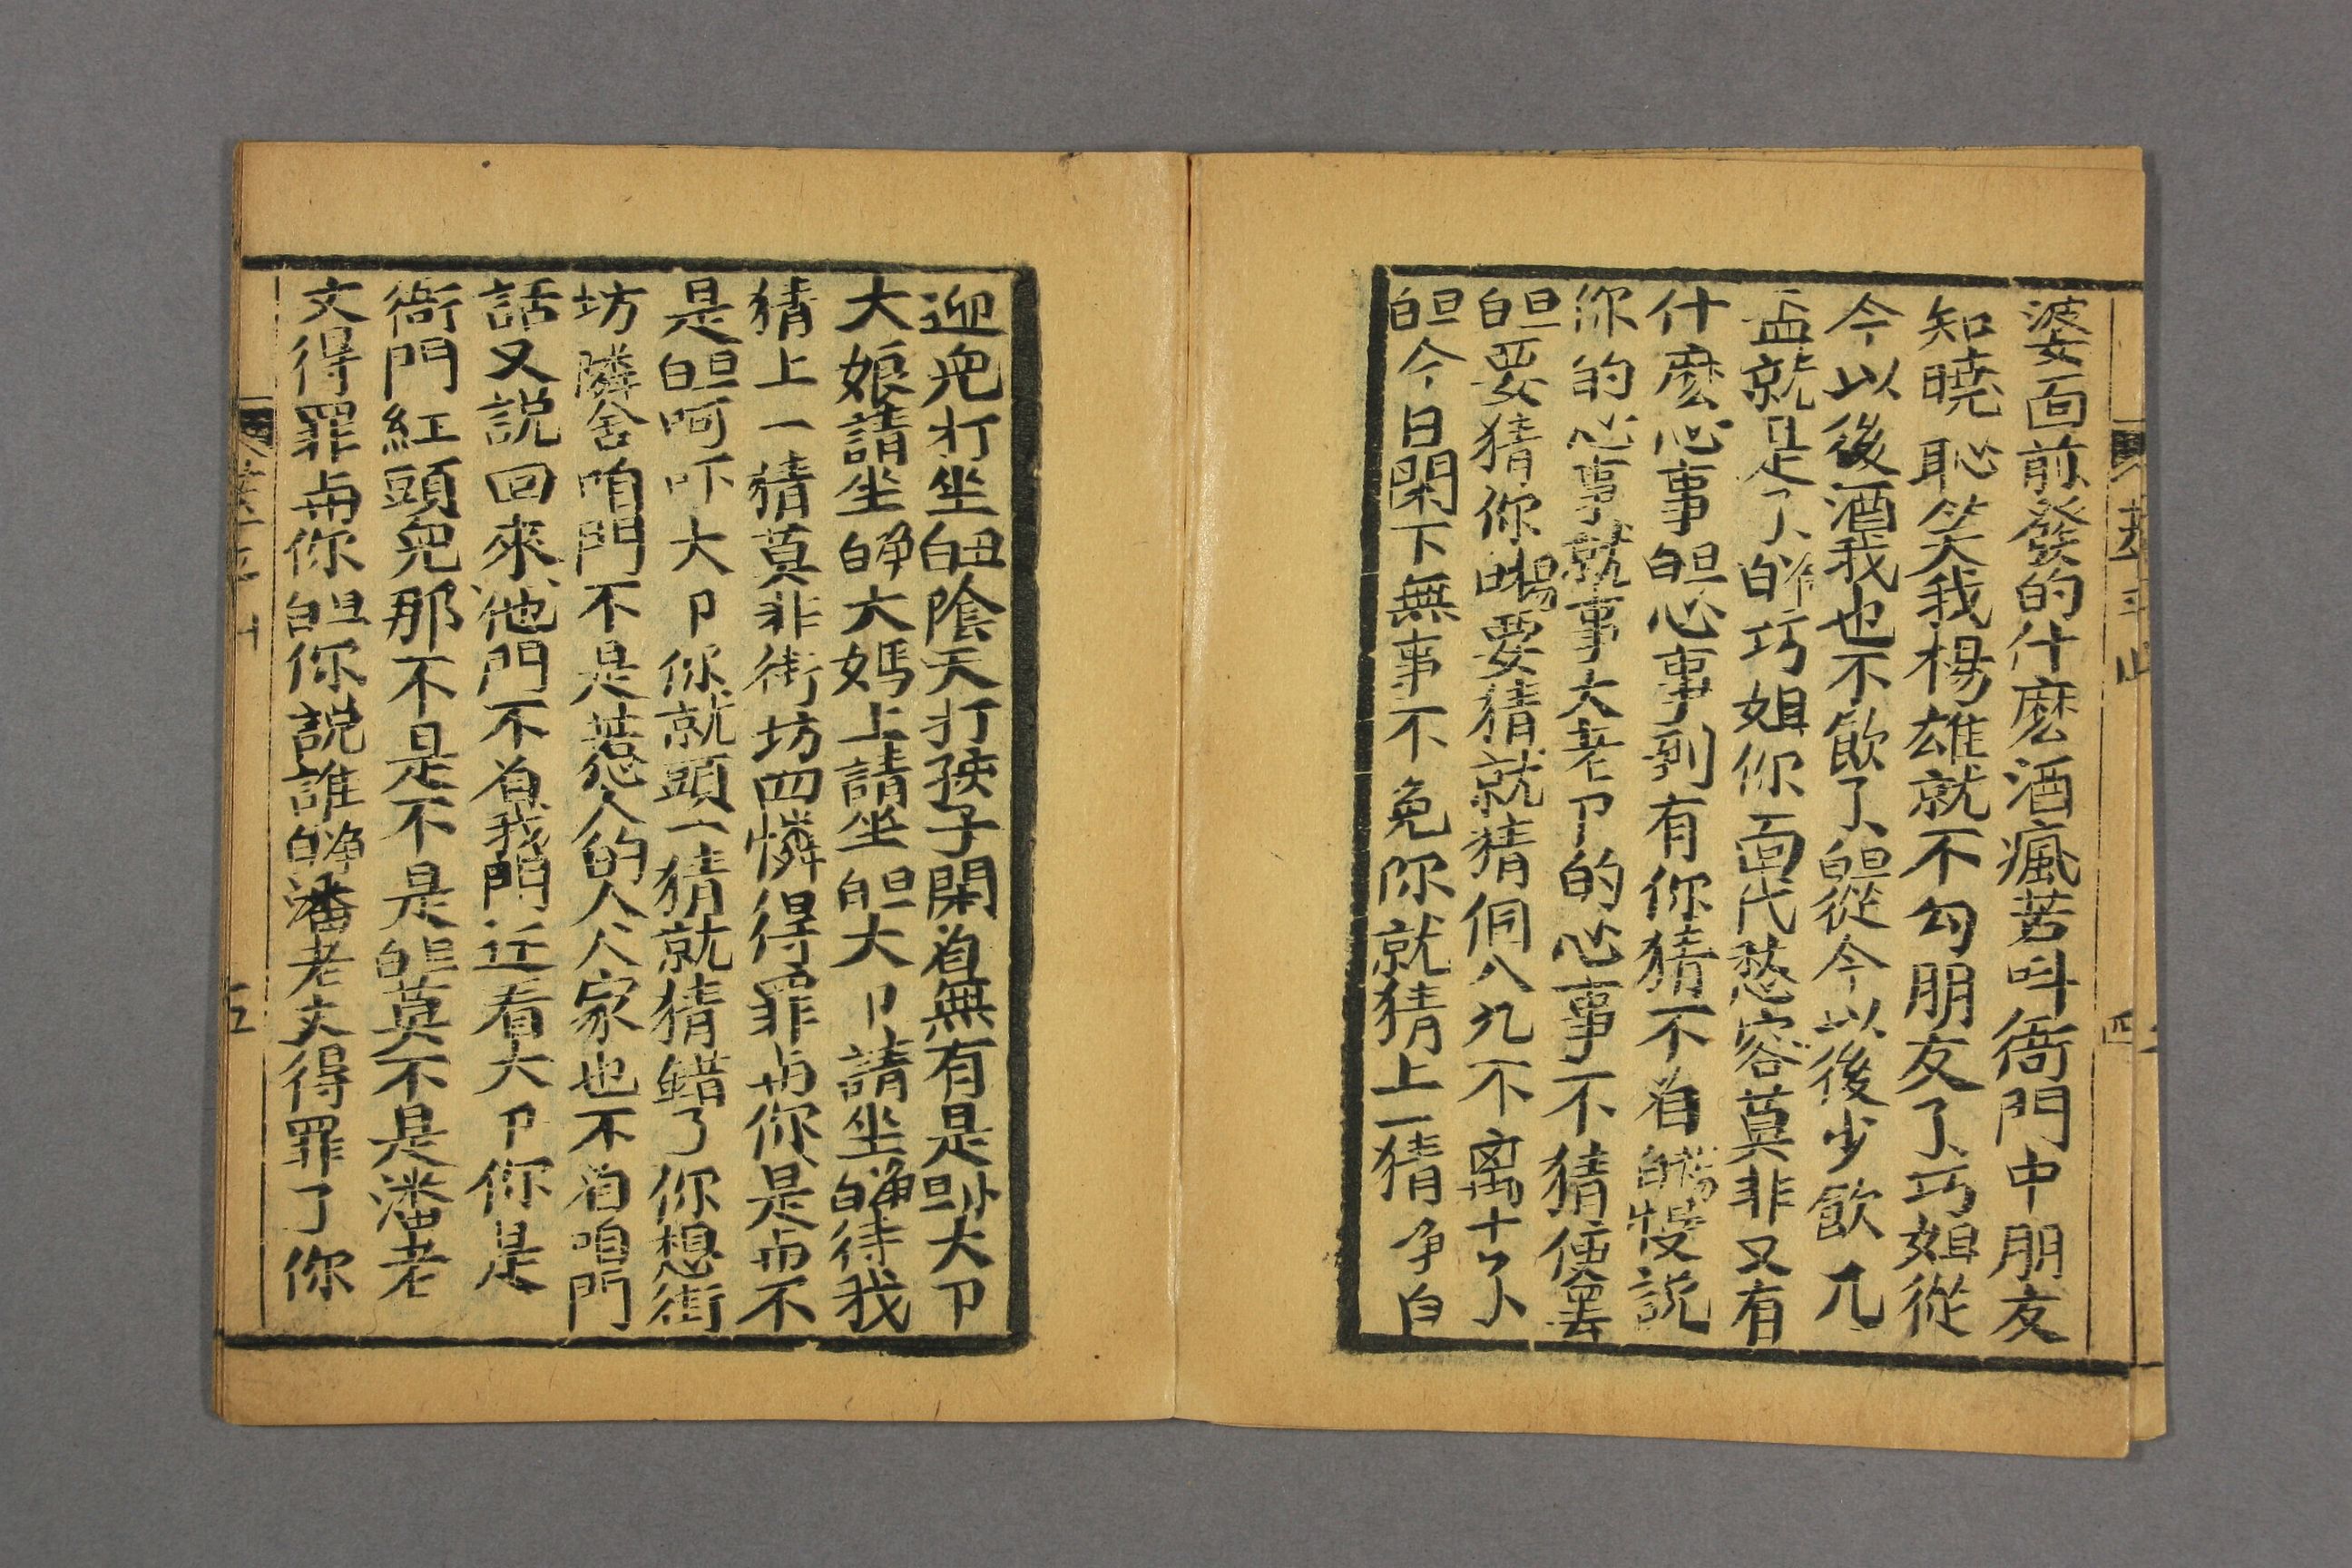 婆面前發的什麽酒瘋苦呌衙門中朋友
知曉恥笑我楊雄就不勾朋友了巧姐從
今以後酒我也不飲了旦白從今以後少飲几
盃就是了净白巧姐你面代愁容莫非又有
什麽心事旦白心事到有你猜不着楊白慢說
你的心事就事大老卩的心事不猜便罢
旦白要猜你楊白要猜就猜個八九不离十了
旦白今日閑下無事不免你就猜上一猜净白
迎兒打坐丑白隂天打孩子閑着無有是叫大卩
大娘請坐净白大媽上請坐旦白大卩請坐净白待我
猜上一猜莫非街坊四憐得罪与你是与不
是旦白呵吓大卩你就頭一猜就猜錯了你想街
坊隣舍咱門不是惹人的人人家也不着咱門
話又説回來他門不着我門迁看大卩你是
衙門紅頭兒那不是不是丑白莫不是潘老
丈得罪与你旦白你説誰净白潘老丈得罪了你
四
五